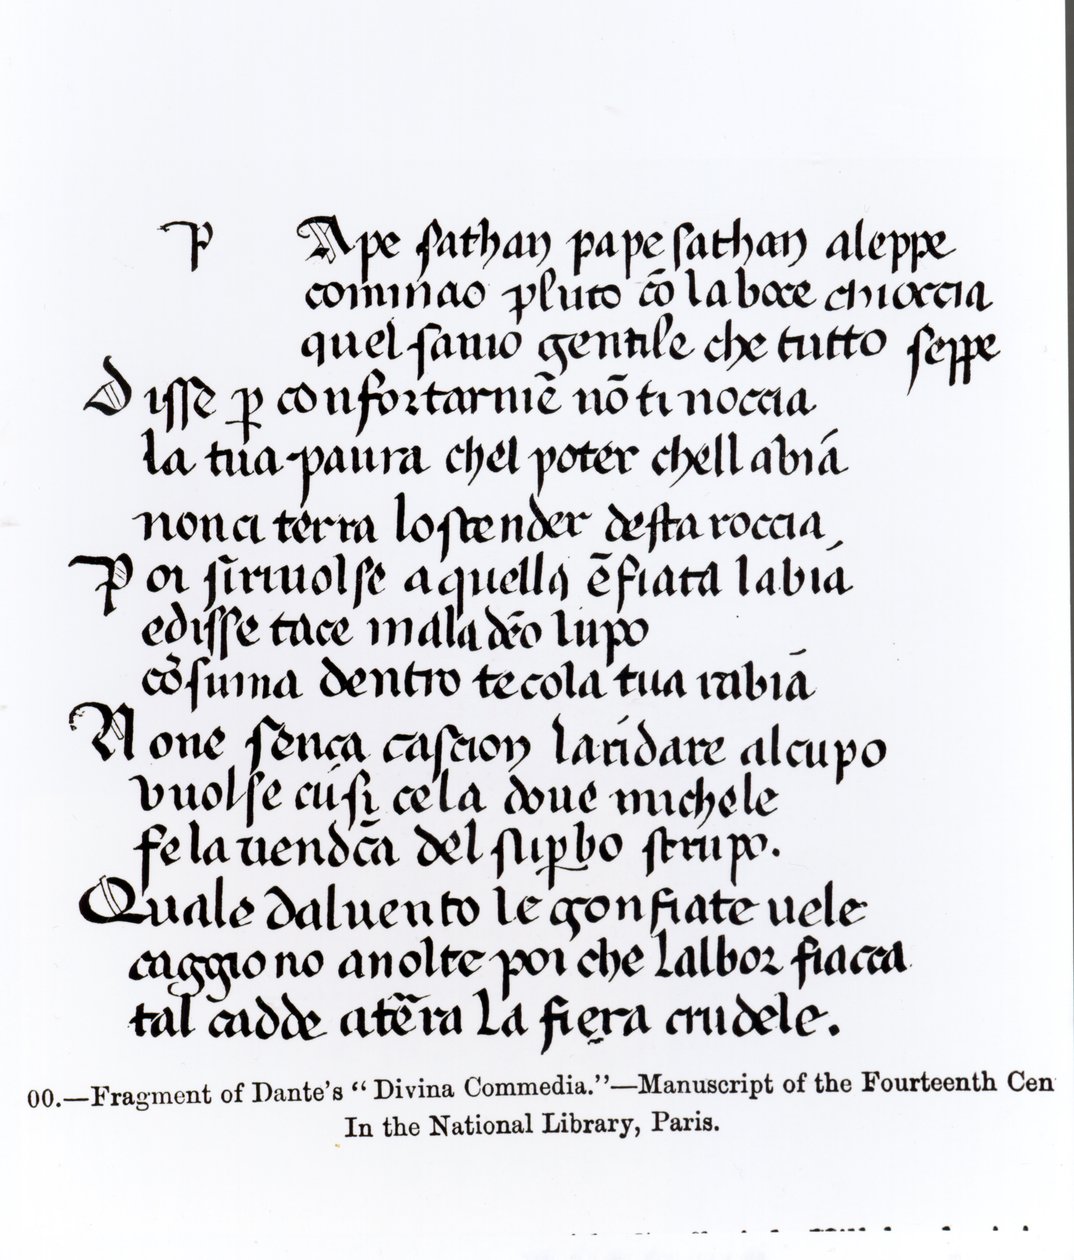 P Ape sathan pape sathan aleppe
cominao pluto cō la boce chioccia
quel sauio gentile che tutto seppe
Disse p confortarmē nō ti noccia
la tua paura chel poter chell abiá
non ci terra lo scender desta roccia
Poi sīriuolse a quella ēfiata labiá
edisse tace maladēo lupo
cōsuma dentro te cola tua rabiā
None sença cascion la ridare alcupo
vuolse cusi cela doue michele
fe la uendcā del supbo strupo.
Quale daluento le gonfiate uele
caggiono anolte poi che lalbor fiacca
tal cadde atēra la fiera crudele.
00.—Fragment of Dante's “Divina Commedia.”—Manuscript of the Fourteenth Cen
In the National Library, Paris.